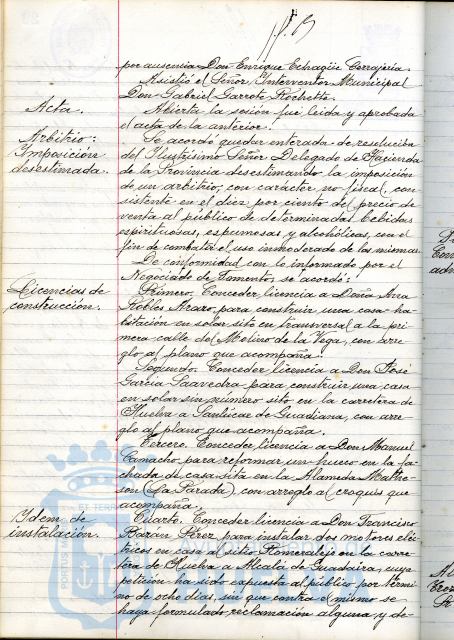 por ausencia Don Enrique Echagüe Cerrajería.
Asistió el Señor Interventor Municipal
Don Gabriel Garrote Rochette.
Acta.
Abierta la sesión fue leida y aprobada
el acta de la anterior.
Arbitrio:
Imposición
desestimada.
Se acordó quedar enterada de resolución
del Ilustrísimo Señor Delegado de Hacienda
de la Provincia desestimando la imposición
de un arbitrio, con carácter no fiscal, con
sistente en el diez por ciento del precio de
venta al público de determinadas bebidas
espirituosas, espumosas y alcohólicas, con el
fin de combatir el uso inmoderado de las mismas.
De conformidad con lo informado por el
Negociado de Fomento, se acordó:
Licencias de
construcción.
Primero. Conceder licencia a Doña Ana
Robles para construir una casa ha-
bitación en solar sito en transversal a la pri-
mera calle del Molino de la Vega, con arre-
glo al plano que acompaña.
Segundo. Conceder licencia a Don José
García Saavedra para construir una casa
en solar sin número sito en la carretera de
Huelva a Sanlúcar de Guadiana, con arre-
glo al plano que acompaña.
Tercero. Conceder licencia a Don Manuel
Camacho para reformar un hueco en la fa-
chada de casa sita en la Alameda Mathe-
son (La Parada) con arreglo al croquis que
acompaña.
Ydem de
instalación.
Cuarto. Conceder licencia a Don Francisco
Bazán Pérez para instalar dos motores eléc-
tricos en casa al sitio Romeralejo en la carre-
tera de Huelva a Alcalá de Guadaira, cuya
petición ha sido expuesta al público por térmi-
no de ocho días, sin que contra el mismo se
haya formulado reclamación alguna, y de-